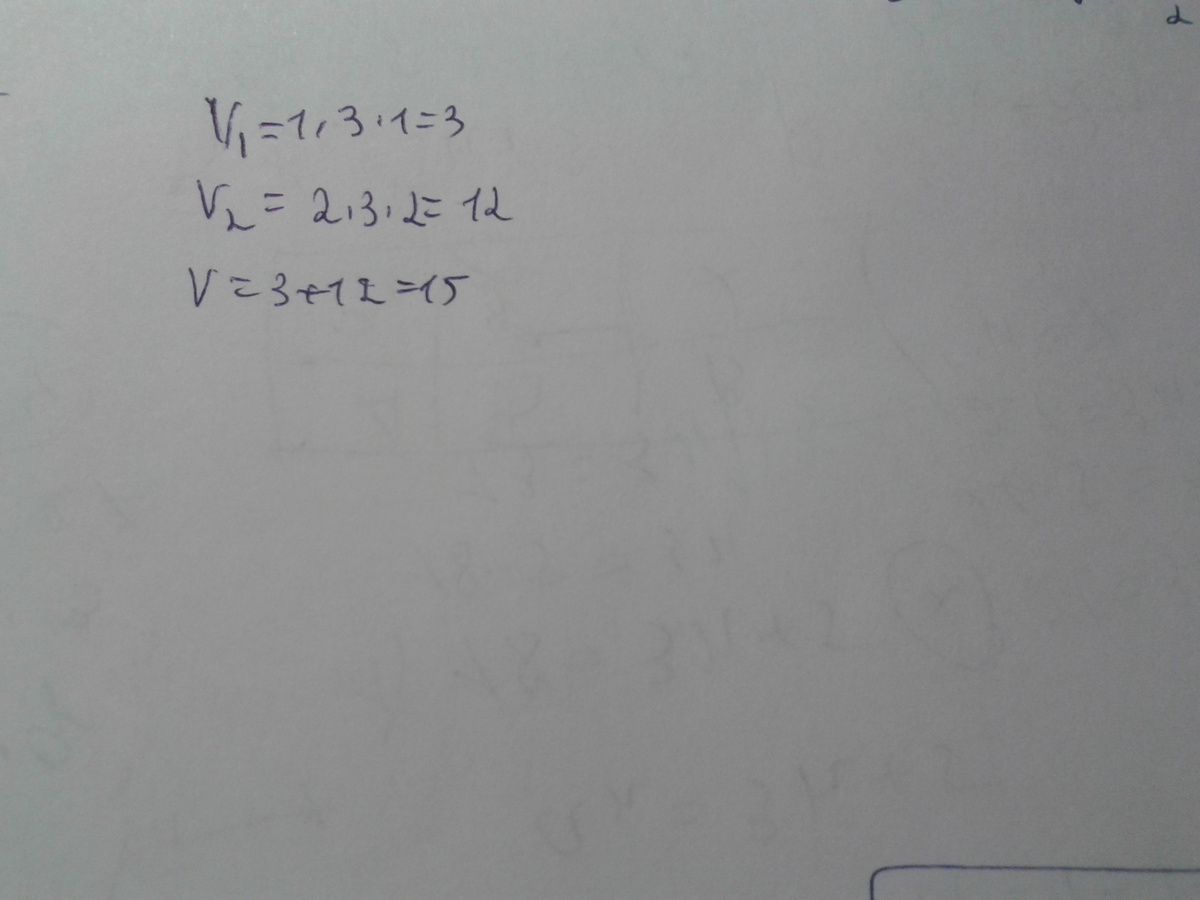 V₁=1·3·1=3
V₂= 2·3·2= 12
V=3+12=15